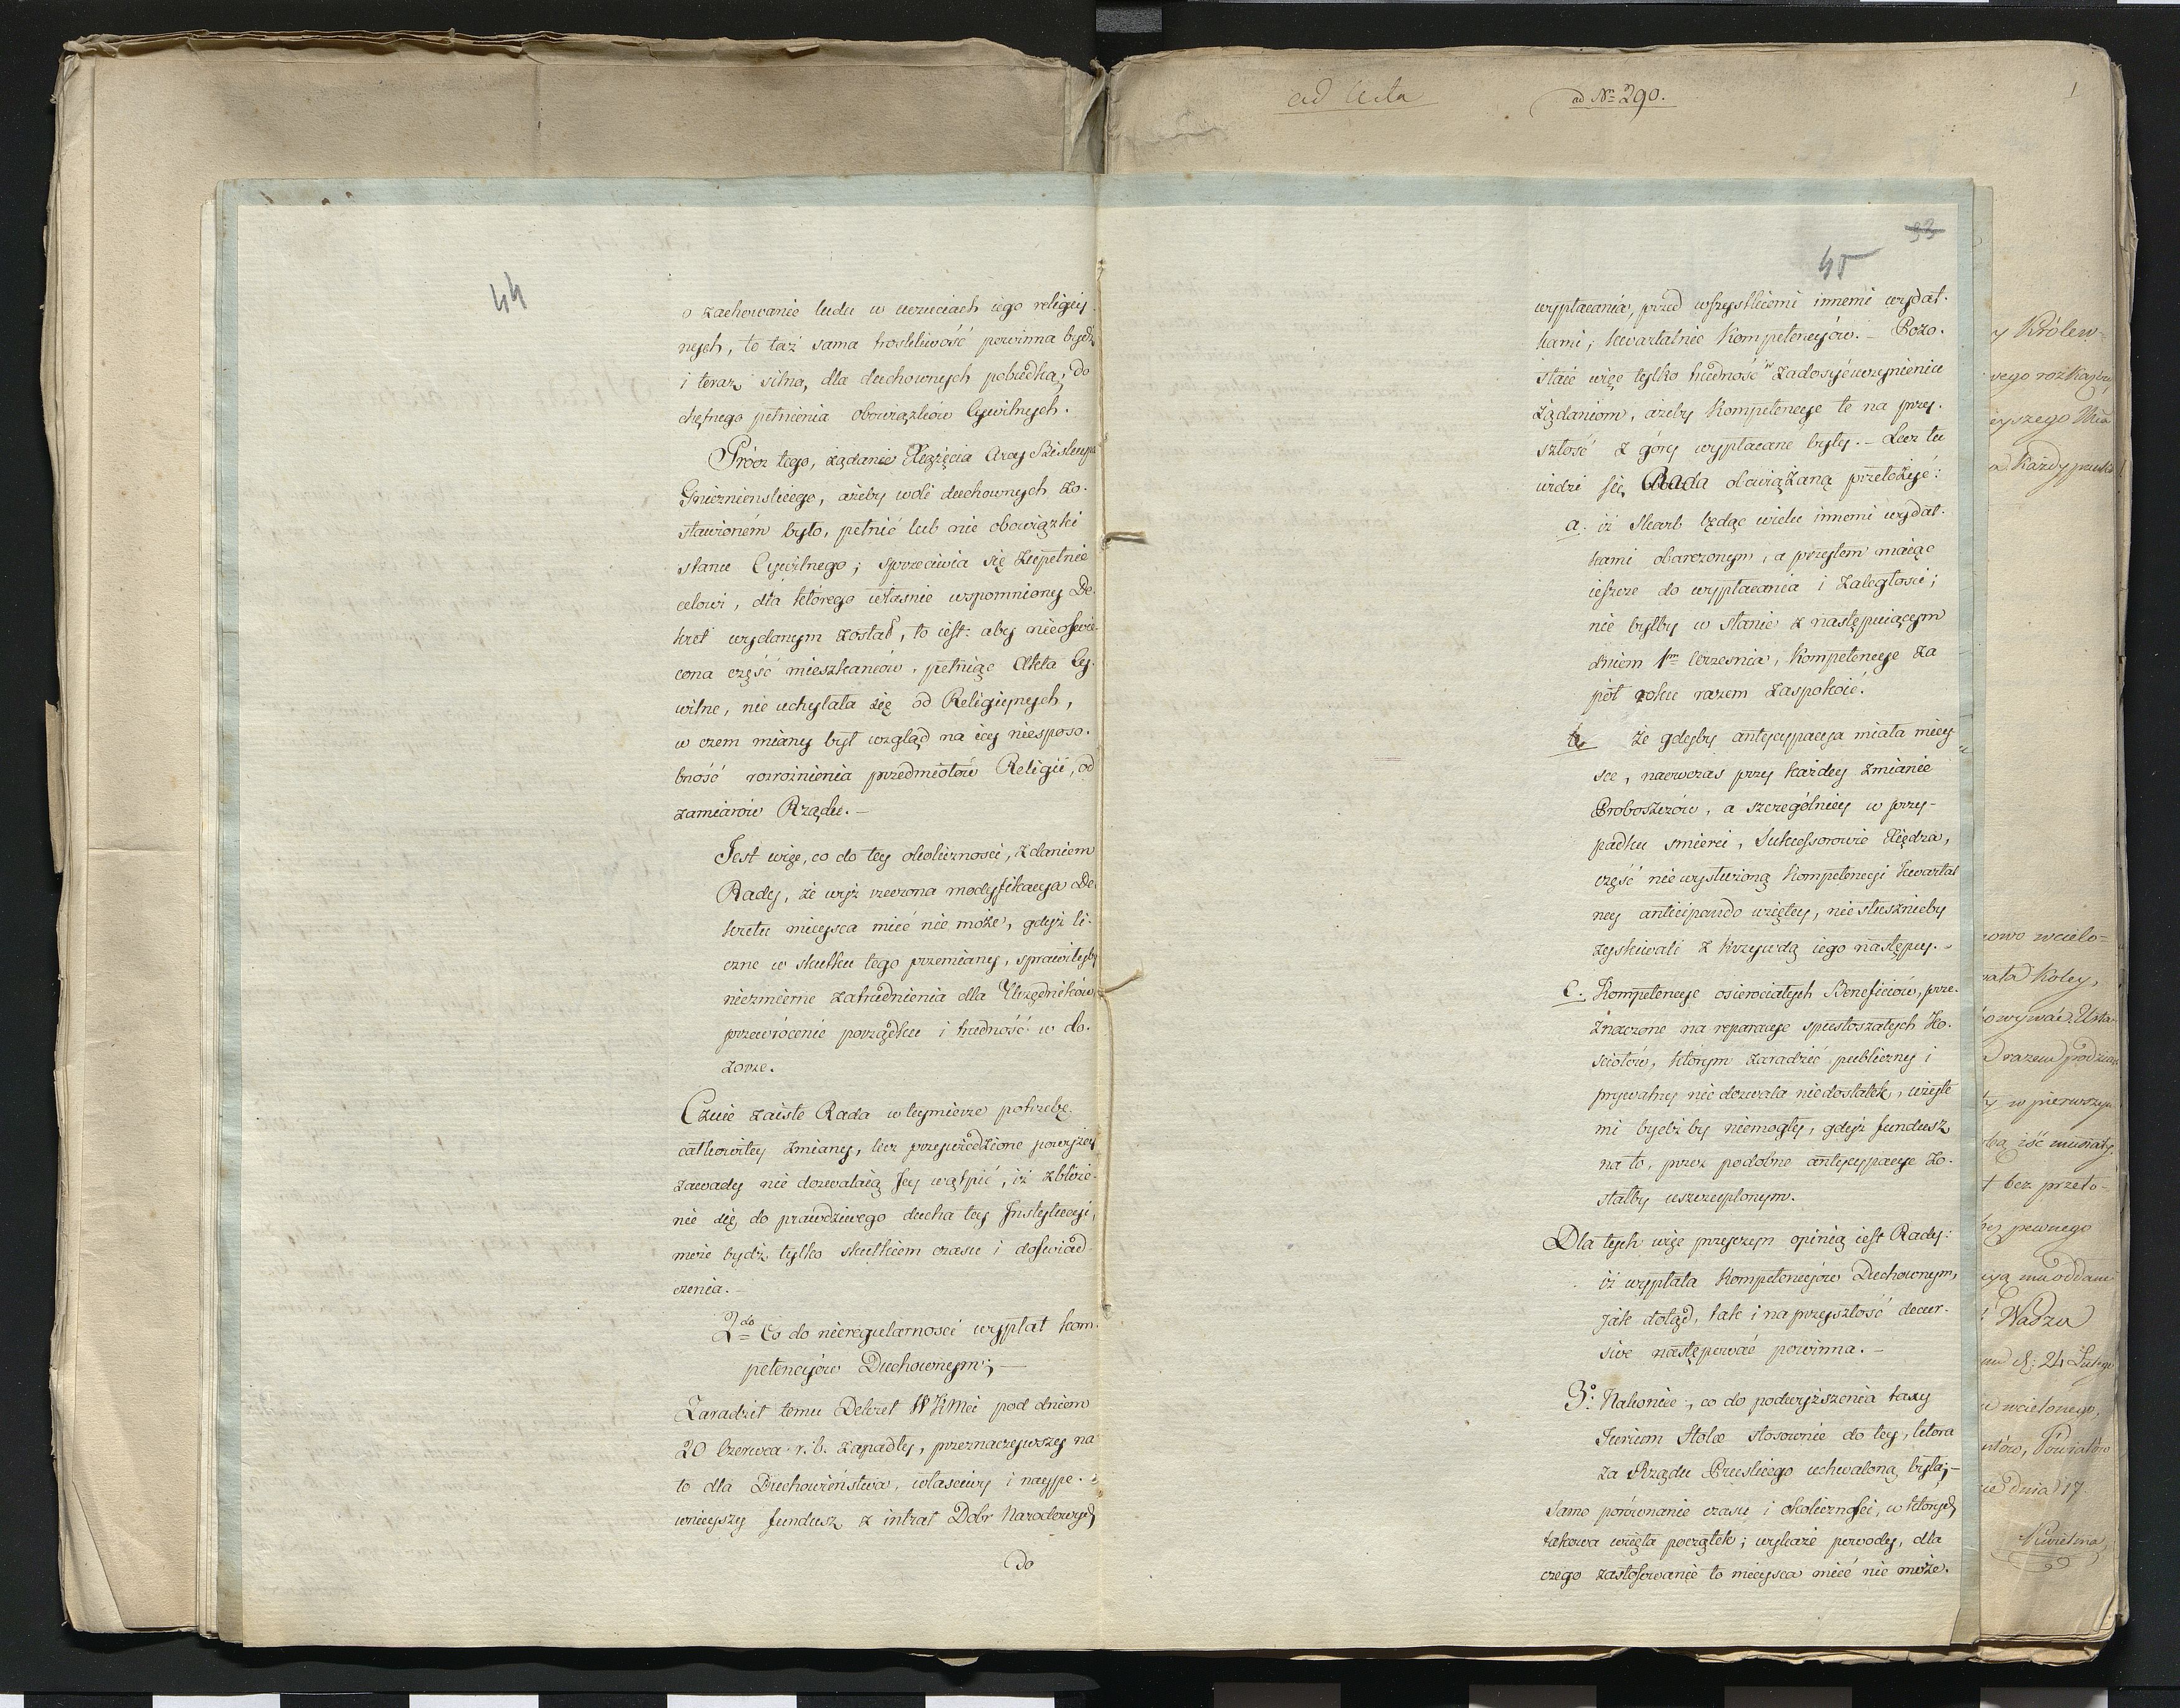 44
o zachowanie ludu w uczuciach iego religiy
nych, to taż sama troskliwość powinna bydź
i teraz silną, dla duchownych pobudką, do
chętnego pełnienia obowiązków Cywilnych.
Prócz tego, żądanie Xiążęcia Arcy Biskupa
Gnieznienskiego, ażeby woli duchownych zo-
stawionem było, pełnić lub nie obowiązki
stanu Cywilnego; sprzeciwia się zupełnie
celowi, dla którego własnie wspomniony De-
kret wydanym został, to iest: aby nieoświe-
cona część mieszkanców, pełniąc Akta Cy-
wilne, nie uchylała się od Religiynych,
w czem miany był wzgląd na iey niesposo-
bność rozróżnienia przedmiotów Religii, od
zamiarów Rządu.—
Jest więc, co do tey okoliczności, zdaniem
Rady, że wyż rzeczona modyfikacya De-
kretu mieysca mieć nie może, gdyż li-
czne w skutku tego przemiany, sprawiłyby
niezmierne zatrudnienia dla Urzędników,
przewrócenie porządku i trudność w do-
zorze.
Czuie zaiste Rada w teymierze potrzebę
całkowitey zmiany, lecz przywiedzione powyżey
zawady nie dozwalaią Jey wątpić, iż zbliże-
nie się do prawdziwego ducha tey Instytucyi,
może bydź tylko skutkiem czasu i doświad-
czenia.—
2do Co do nieregularnosci wypłat kom-
petencyów Duchownym;—
Zaradził temu Dekret WKMci pod dniem
20 Czerwca r. b. zapadły, przeznaczywszy na
to dla Duchowieństwa, własciwy i naype-
wnieyszy fundusz z intrat Dobr Narodowych
Do
ad Acta
ad No 290.
1
33
45
wypłacania, przed wszystkiemi innemi wydat-
kami, kwartalnie Kompetencyów.— Pozo-
staie więc tylko trudność w zadosyćuczynieniu
żądaniom, ażeby Kompetencye te na przy-
szłość z góry wypłacane były.— Lecz tu
widzi się Rada obowiązaną przełożyć:
a. iż Skarb będąc wielu innemi wydat-
kami obarczonym, a przytem maiąc
ieszcze do wypłacania i zaległosci;
nie byłby w stanie z następuiącym
dniem 1m Wrzesnia, Kompetencye za
poł roku razem zaspokoić.
b. że gdyby antycypacya miała miey-
sce, naówczas przy każdey zmianie
Proboszczów, a szczególniey w przy-
padku smierci, Sukcessorowie Xiędza,
część niewysłużoną Kompetencyi kwartal
ney anticipando wziętey, niesłusznieby
zyskiwali z krzywdą iego następcy.-
c. Kompetencye osierociałych Beneficiów, prze-
znaczone na reparacye spustoszałych Ko-
sciołów, którym zaradzić publiczny i
prywatny niedozwala niedostatek, wzięte
mi bydźby niemogły, gdyż fundusz
na to, przez podobne antycypacye zo-
stałby uszczuplonym.
Dla tych więc przyczyn opinią iest Rady:
iż wypłata Kompetencyów Duchownym,
jak dotąd, tak i na przyszłość decur-
sive następować powinna.—
3o: Nakoniec, co do podwyższenia taxy
Jurium Stolæ stosownie do tey, która
za Rządu Pruskiego uchwaloną była;—
samo porównanie czasu i okoliczności, w których
takowa wzięła początek; wykaże powody, dla
czego zastosowanie to mieysca mieć nie może.
y Królew-
wego rozkazu
owo wcielo=
nata Koley,
w pierwszym
bez przeło-
pewnego
Wadzu
d: 24 Lutego
wcielonego,
Powiatów
dnia 17
Kwietnia